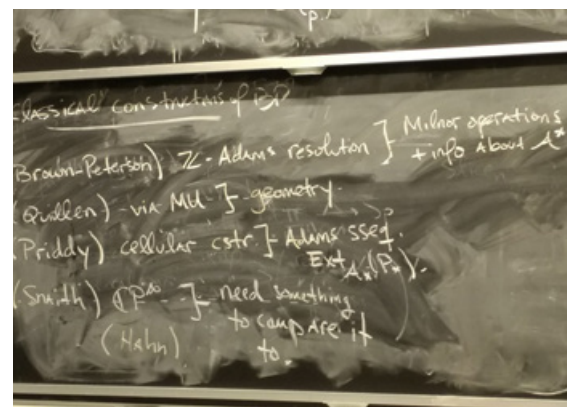 (P.)
Classical constructns of BP
Brown-Peterson) Z-Adams resolution } Milnor operations
+ info about A*
(Quillen) - via MU } - geometry.
(Priddy) cellular cstr. } Adams sseq.
Ext A* (P*).
(Smith) CP^∞ -- } - need something
to compare it
(Hahn) to.